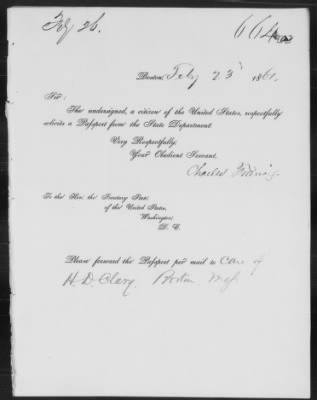 Feby 26.
Boston, Feby 23d 1861.
Sir:
The undersigned, a citizen of the United States, respectfully
solicits a Passport from the State Department.
Very Respectfully,
Your Obedient Servant,
Charles
To the Hon. the Secretary State
of the United States,
Washington,
D. C.
Please forward the Passport per mail to Care of
H. D. Clary, Boston Mass